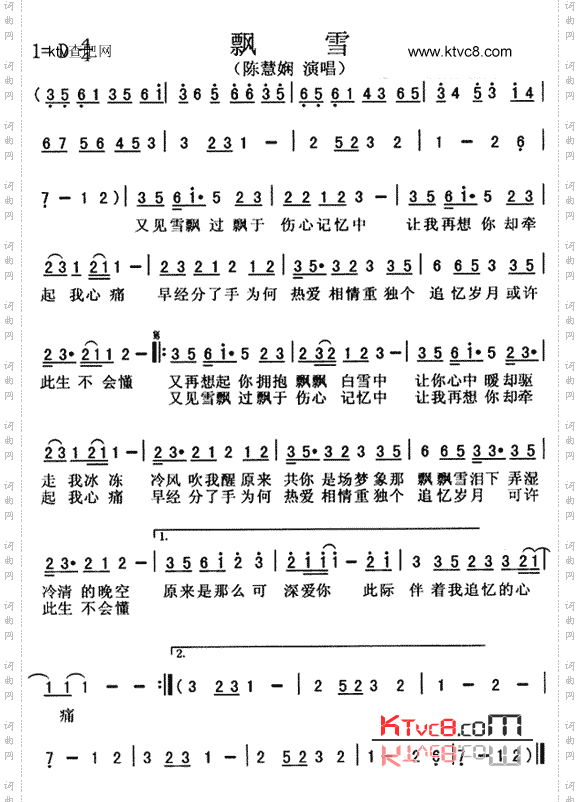 飘 雪
1=D 4/4 ktv查吧网
www.ktvc8.com
（陈慧娴 演唱）
(3 5 6 1 3 5 6 i | 3 6 5 6 3 5 | 6 5 6 1 4 3 6 5 | 3 4 5 3 i 4 |
6 7 5 6 4 5 3 | 3 2 3 1 - | 2 5 2 3 2 | 1 - 2 6 |
7 - 1 2 ) | 3 5 6 i· 5 2 3 | 2 2 1 2 3 2 | 3 5 6 i· 5 2 3 |
又见雪飘 过 飘于 伤心记忆中 让我再想 你 却牵
2 3 1 2 1 1 - | 2 3 2 1 2 1 2 | 3 5· 3 2 3 3 5 | 6 6 5 3 2 3 3 5 |
起 我心 痛 早经分了手为何 热爱 相情重独个 追忆岁月或许
2 3· 2 1 1 2 - ‖: 3 5 6 i· 5 2 3 | 2 3 2 1 2 3 - | 3 5 6 i· 5 3 5 |
此生 不 会懂 又再想起 你拥抱 飘飘 白雪中 让你心中 暖却驱
又见雪飘 过飘于 伤心 记忆中 让我再想 你却牵
2 3 1 2 1 1 - | 2 3· 2 1 2 1 2 | 3 5· 3 2 3 3 5 | 6 6 5 3 3· 3 5 |
走 我 冰 冻 冷风 吹我醒 原来 共你 是场梦象那 飘飘雪泪下 弄湿
起 我心 痛 早经 分了手为何 热爱 相情重独个 追忆岁月 可许
1.
2 3· 2 1 2 - | 3 5 6 i 2 3 | 2 i i i - 2 i | 3 5 2 3 3 2 1 |
冷清 的晚空 原来是那么 可 深爱你 此际 伴着我追忆的心
此生 不会懂
2.
1 1 1 - - :‖ ( 3 2 3 1 - | 2 5 2 3 2 | 1 - 2 6 |
痛
7 - 1 2 | 3 2 3 1 - | 2 5 2 3 2 | 1 - 2 6 | 7 - - - ) ‖
KTvc8.com
词曲网
词曲网
词曲网
词曲网
词曲网
词曲网
词曲网
词曲网